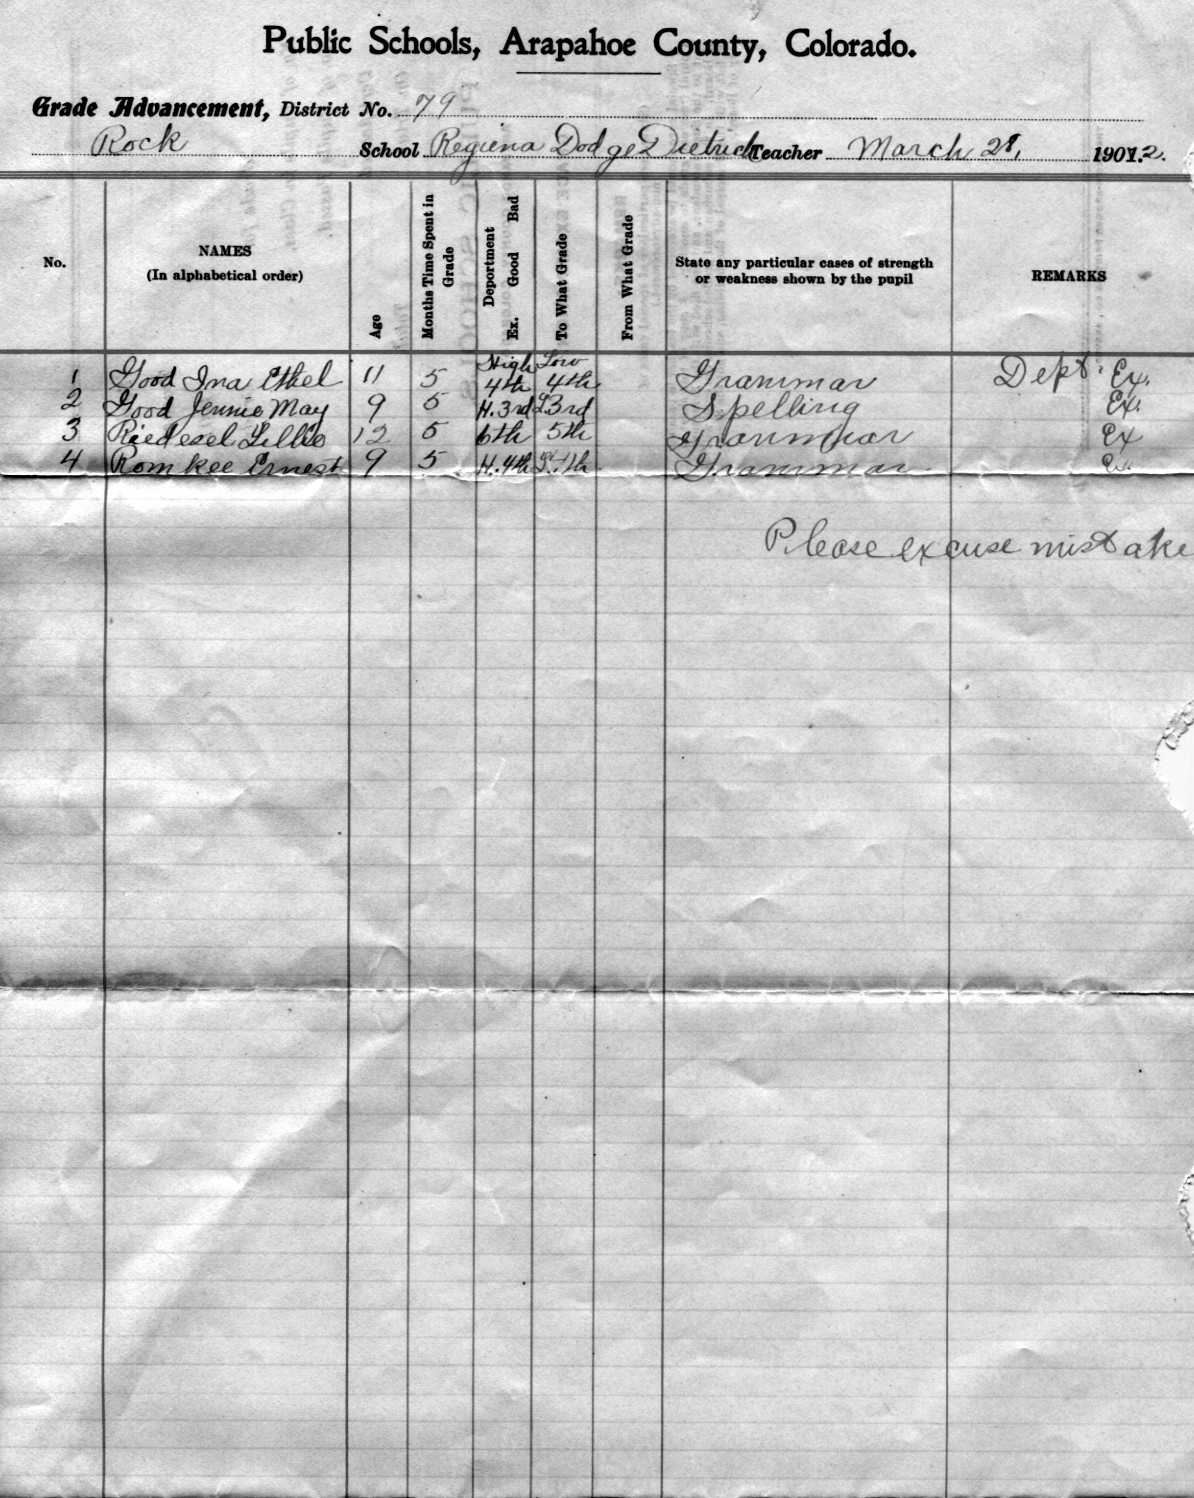 Public Schools, Arapahoe County, Colorado.
Grade Advancement, District No. 79
Rock School Regiena Dodge Dietrich Teacher March 28, 1902.
No. NAMES (In alphabetical order) Age Months Time Spent in Grade Deportment Ex. Good Bad To What Grade From What Grade State any particular cases of strength or weakness shown by the pupil REMARKS
1 Good Ina Ethel 11 5 High 4th Low 4th Grammar Dept. Ex.
2 Good Jennie May 9 5 H. 3rd L. 3rd Spelling Ex.
3 Riedesel Lillie 12 5 6th 5th Grammar Ex
4 Romkee Ernest 9 5 H. 4th L. 4th Grammar Ex.
Please excuse mistake